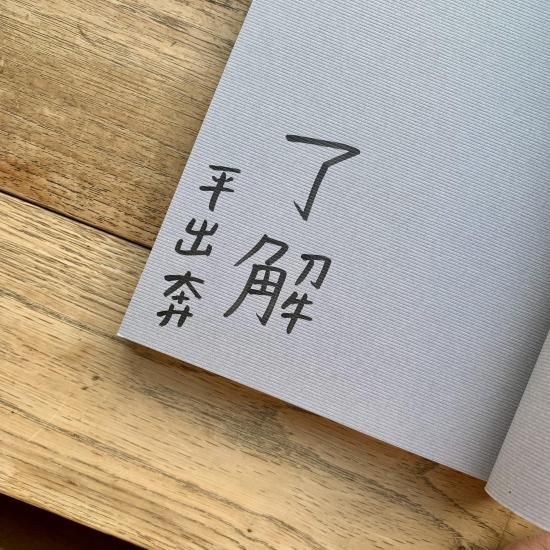 了解
平出奔